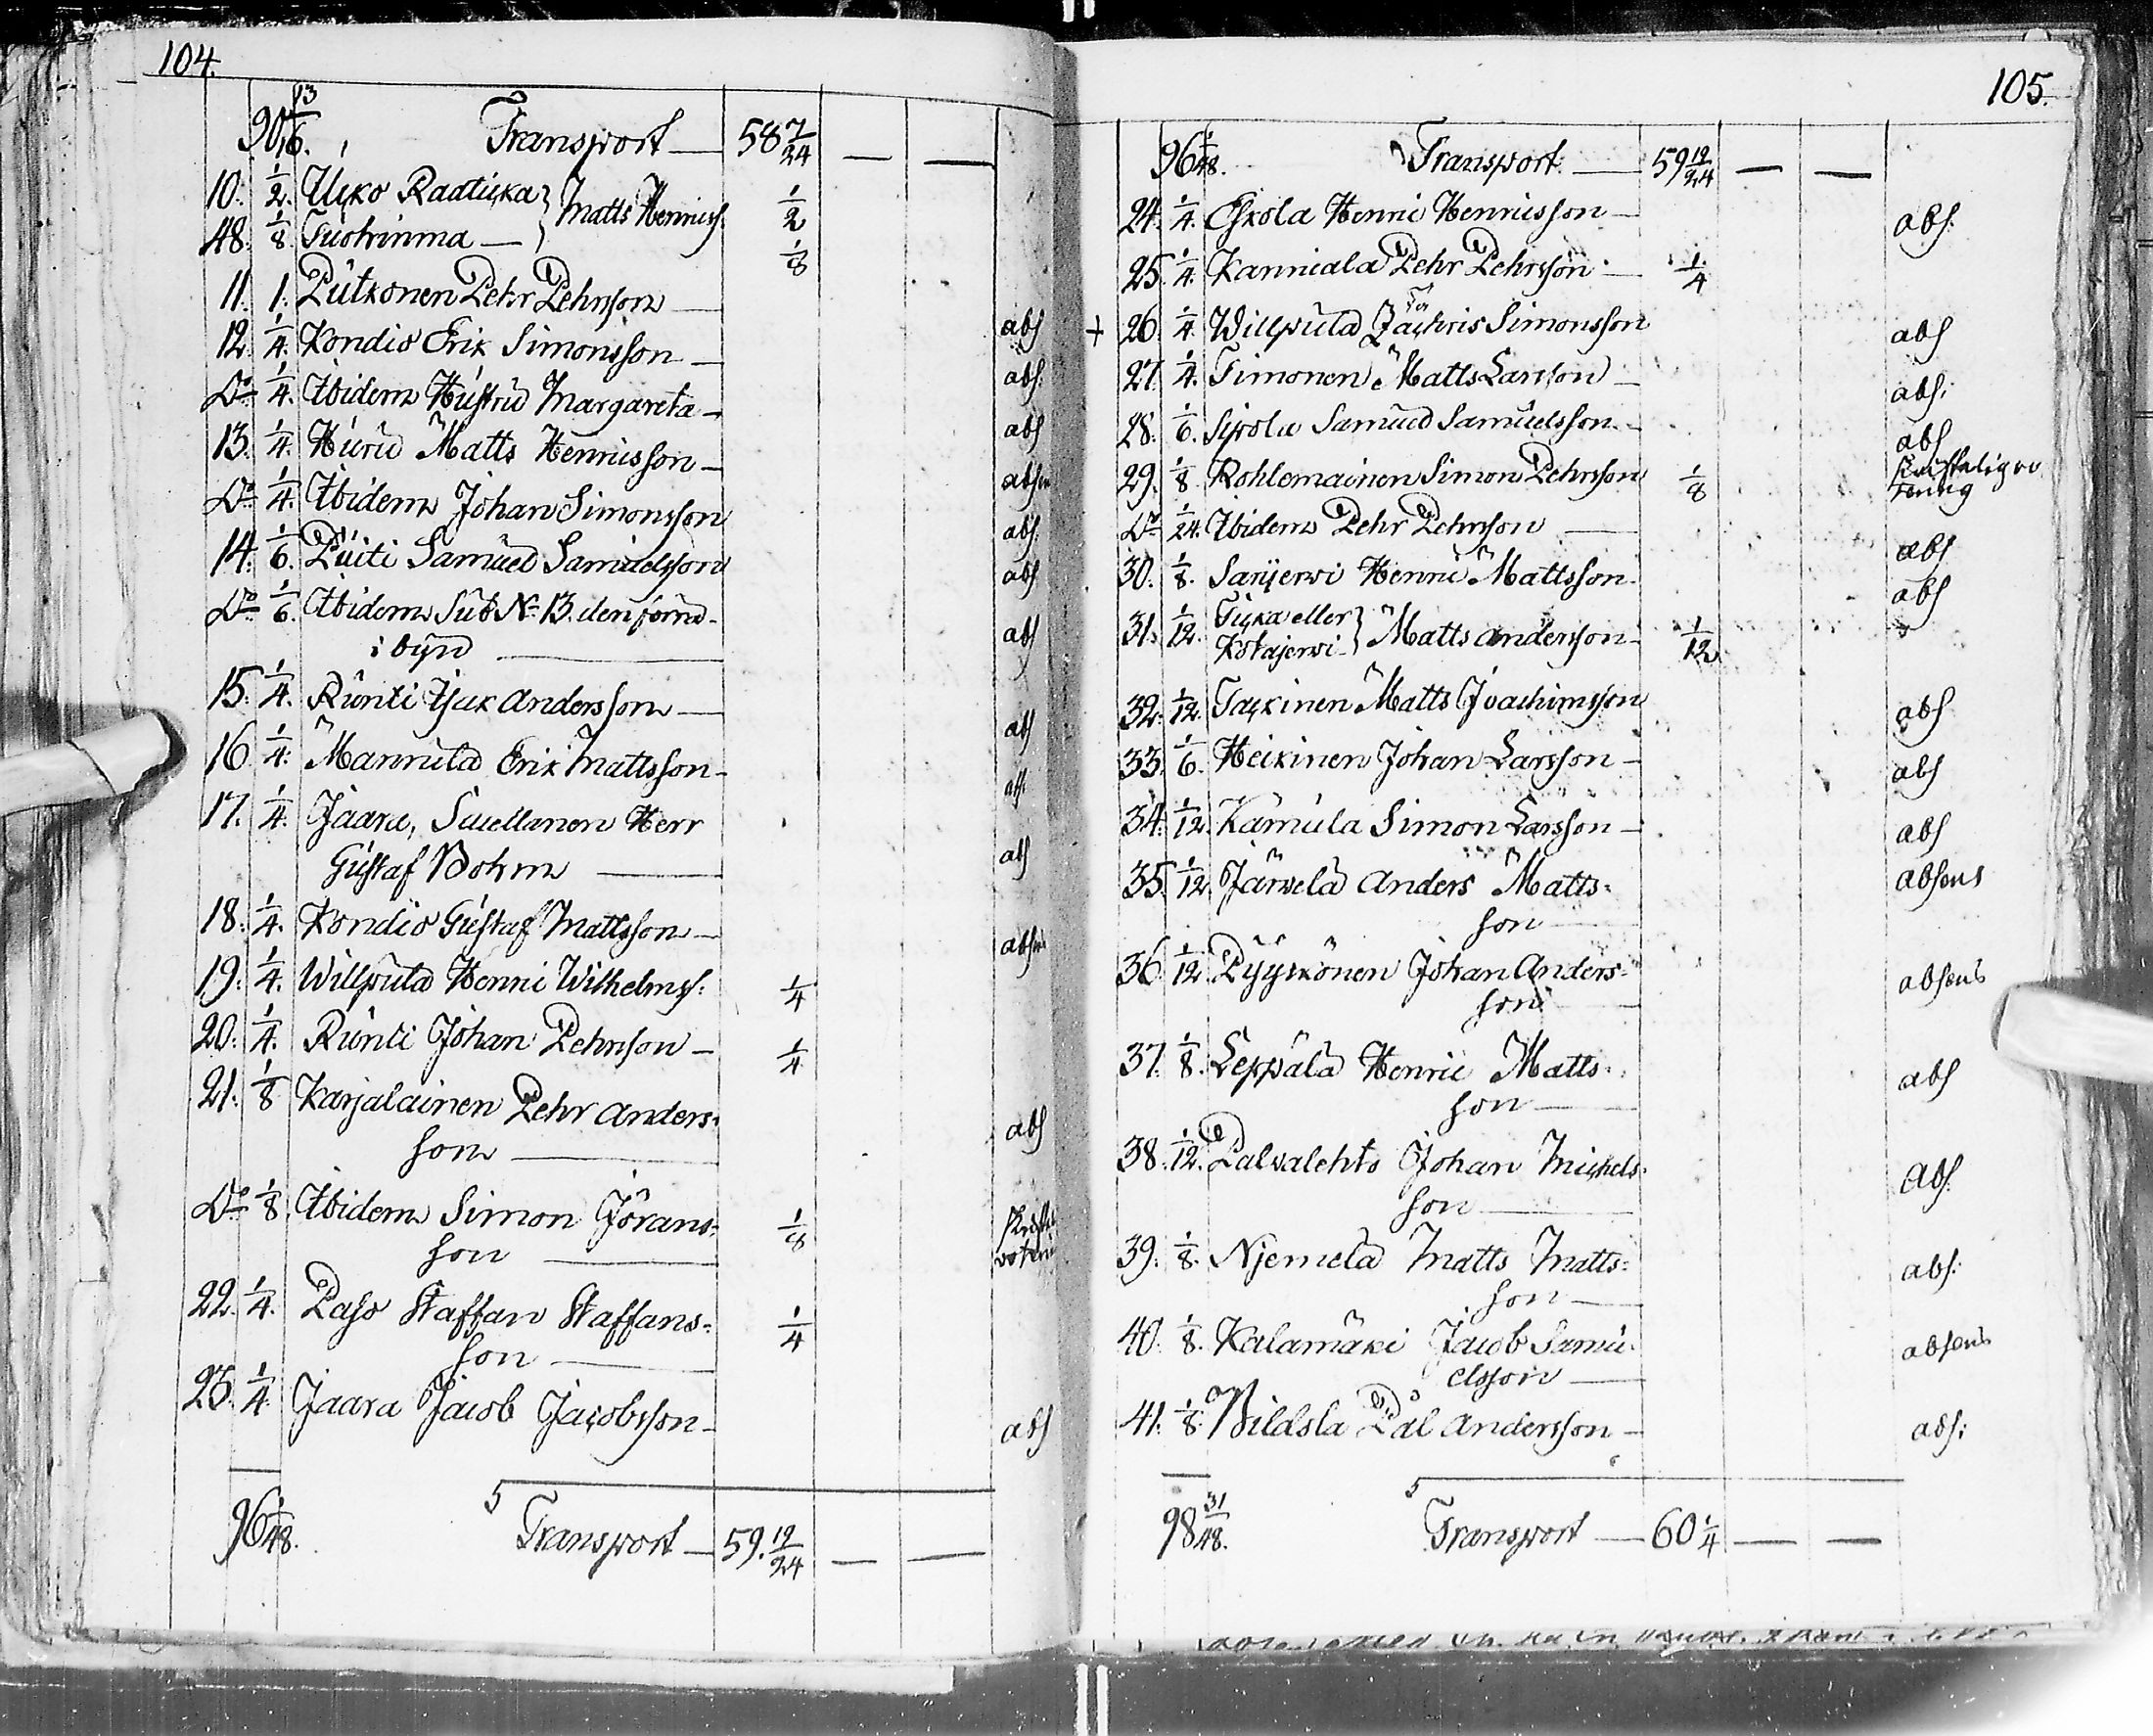 104.
90 13/16. Transport — 58 7/24 — —
10. 1/2. Ucko Raaticka } Matts Henricss. 1/2
48. 1/8. Tuohinma — } 1/8
11. 1. Putkonen Pehr Pehrsson — abs
12. 1/4. Kondio Erik Simonsson — abs:
Do 1/4. Ibidem Hustru Margareta — abs
13. 1/4. Huru Matts Henricsson — absen
Do 1/4. Ibidem Johan Simonsson abs.
14. 1/6. Puiti Samuel Samuelsson abs
Do 1/6. Ibidem Sub No 13. den förra
i byn — abs
15. 1/4. Runti Isak Andersson — abs
16. 1/4. Mannila Erik Mattsson — abs.
17. 1/4. Jaara, Suellanen Herr
Gustaf Bohm — abs
18. 1/4. Kondio Gustaf Mattsson — absens
19. 1/4. Willpula Henric Wilhelmss: 1/4
20. 1/4. Runti Johan Pehrsson — 1/4
21. 1/8 Karjalainen Pehr Anders=
son — abs
Do 1/8. Ibidem Simon Jörans=
son — 1/8
22. 1/4. Paso Staffan Staffans=
son — 1/4
23. 1/4 Jaara Jacob Jacobsson — abs
96 1/48. 5 Transport — 59. 19/24 — —
105.
96 1/48. Transport. — 59 19/24 — —
24. 1/4. Eskola Henric Henricsson — abs:
25. 1/4. Kanniala Pehr Pehrsson — 1/4
+ 26. 1/4. Willpula Zachris Simonsson abs
27. 1/4. Timonen Matts Larsson — abs:
28. 1/6. Sipola Samuel Samuelsson — abs
29. 1/8 Kohlemainen Simon Pehrsson 1/8
Do 1/24. Ibidem Pehr Pehrsson — abs
30. 1/8. Sarijerwi Henric Mattsson. abs
31. 1/12. Ticka eller
Kotajerwi } Matts Andersson — 1/12
32. 1/12. Tackinen Matts Joachimsson abs
33. 1/6. Heikinen Johan Larsson — abs
34. 1/12. Kämula Simon Larsson — abs
35. 1/12. Järwelä Anders Matts=
son — absens
36. 1/12. Pyykönen Johan Anders=
son — absens
37. 1/8. Leppälä Henric Matts=
son — abs
38. 1/12. Palwalehto Johan Michels=
son — Abs.
39. 1/8. Njemelä Matts Matts=
son — abs:
40. 1/8. Kalamäki Jacob Samu=
elsson — absens
41. 1/8. Wildsla Pål Andersson — abs:
98 31/48. 5 Transport — 60 1/4 — —